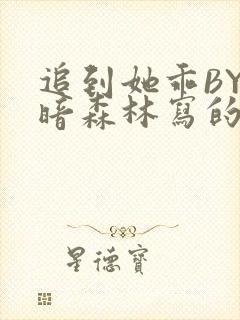 追到她乖BY
暗森林寫的
星德寶